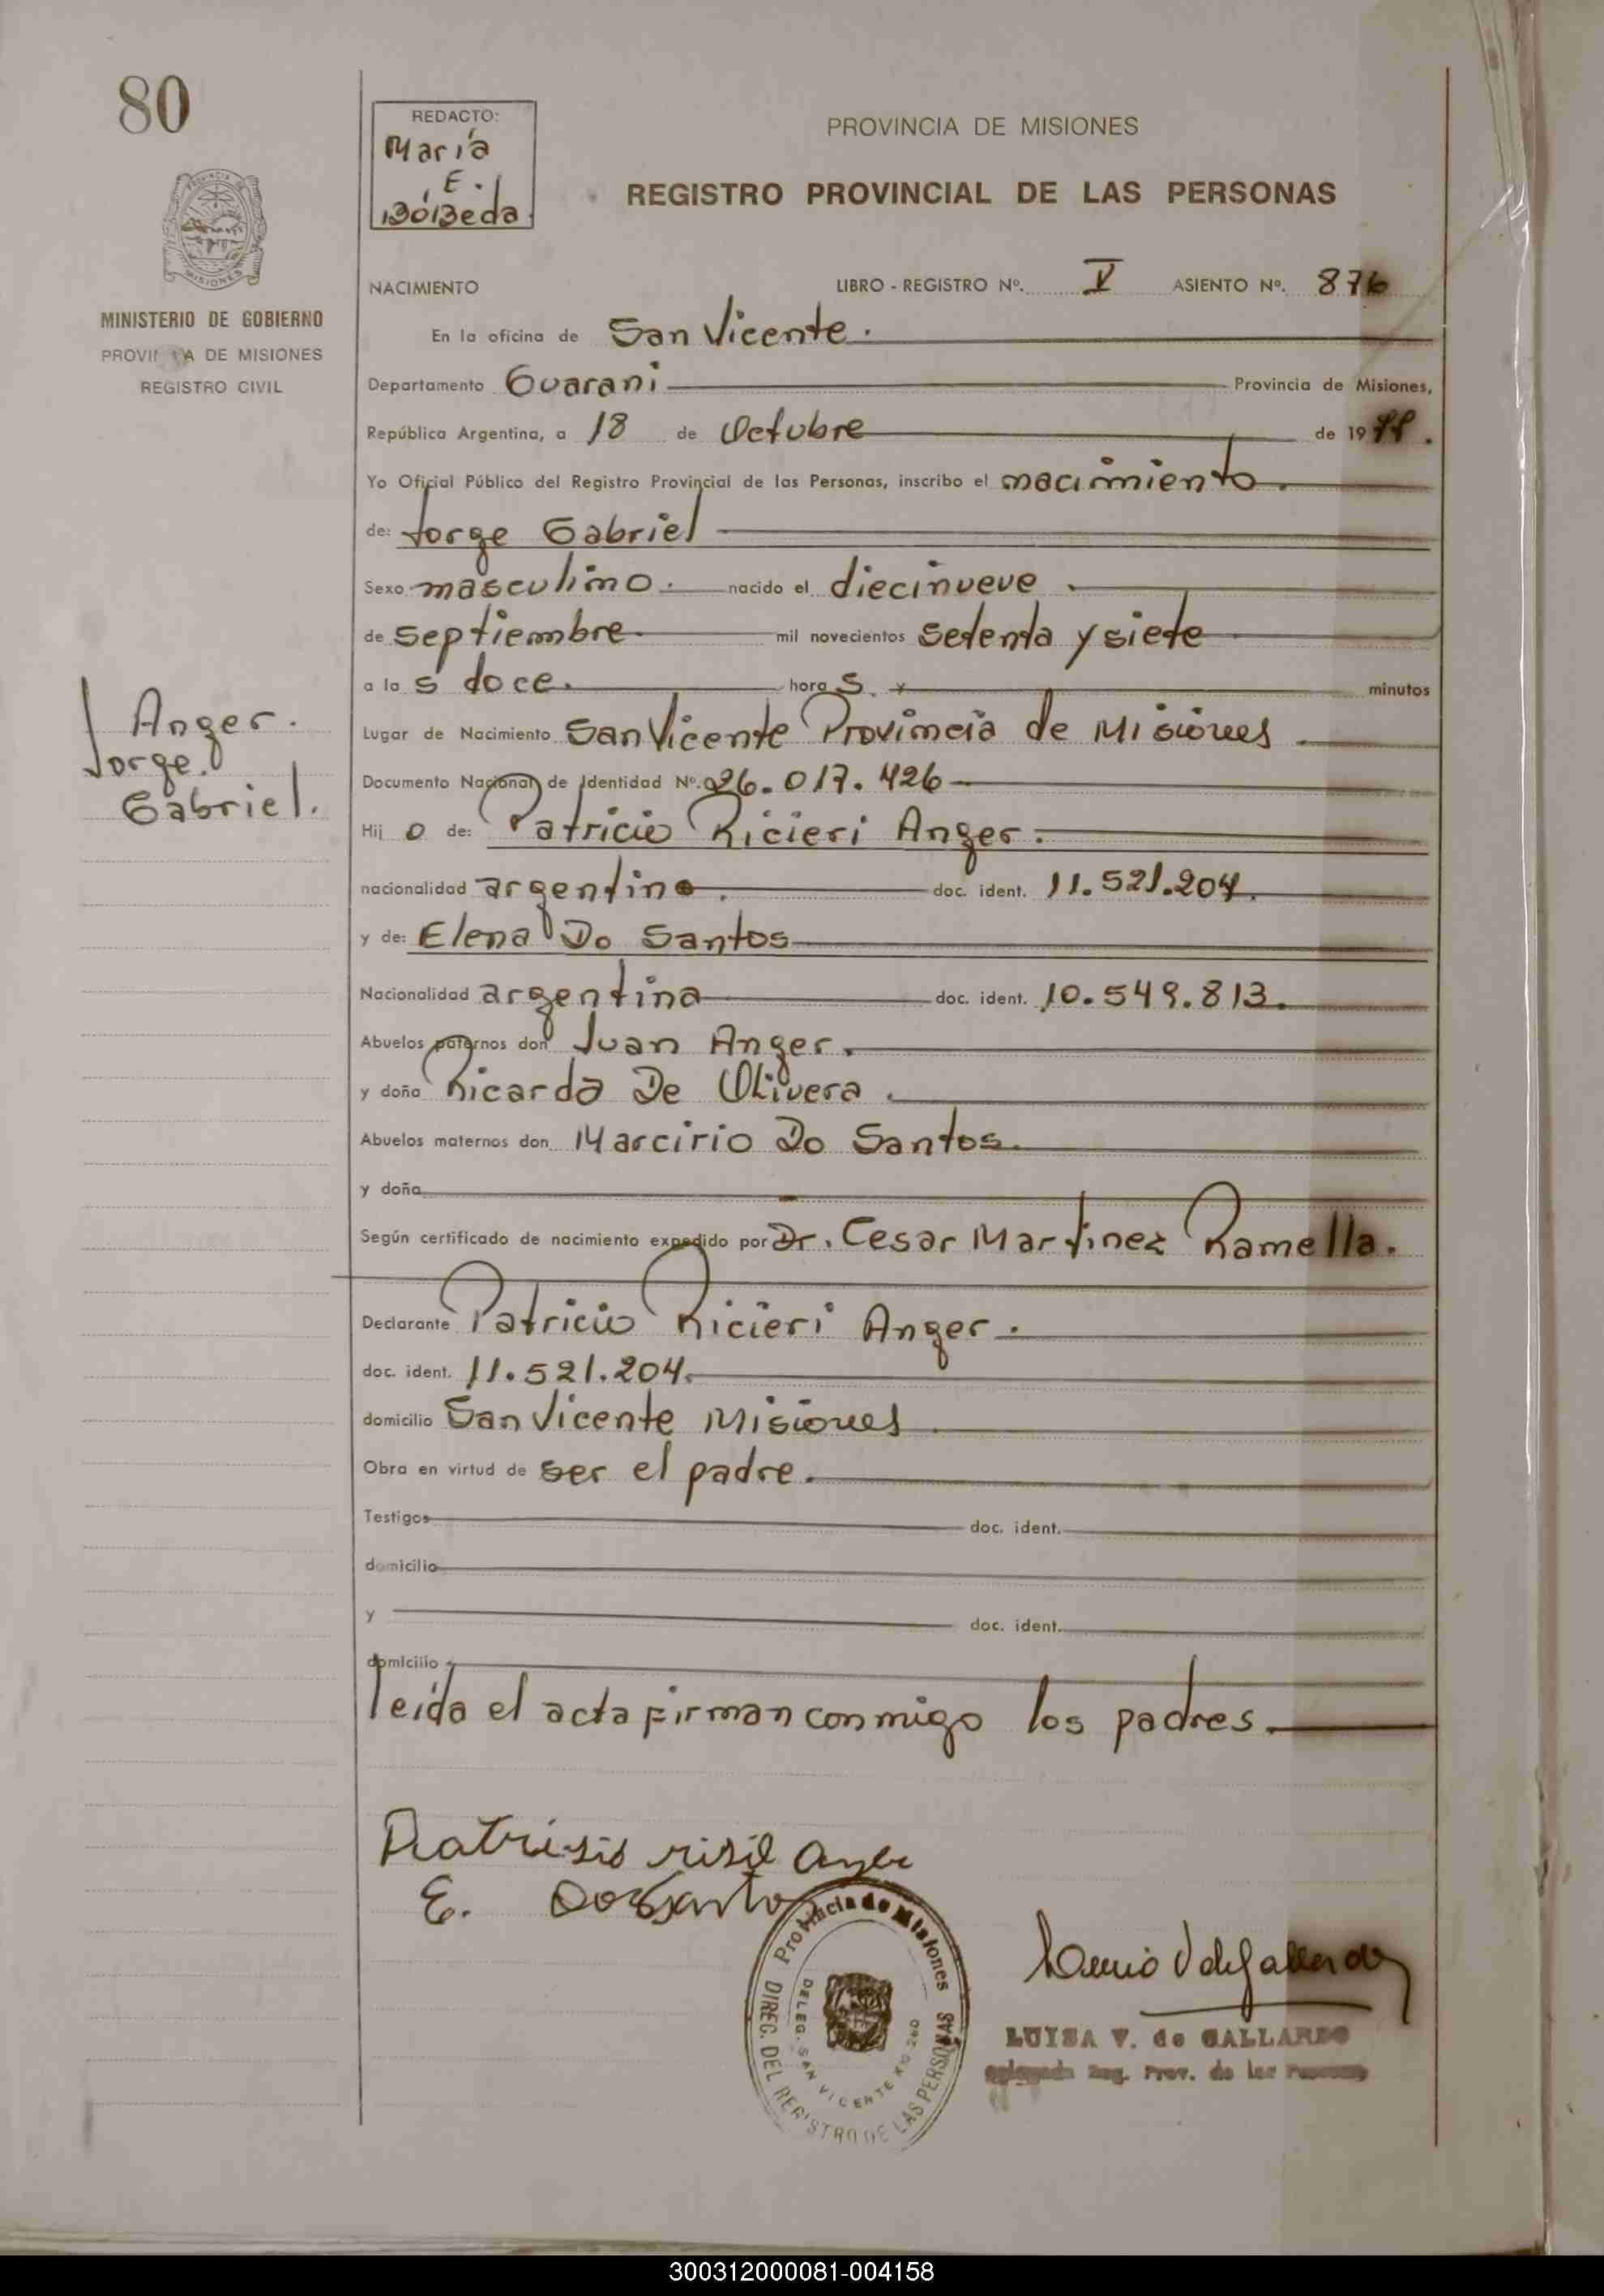 80
REDACTO:
María
E.
Bóbeda
PROVINCIA DE MISIONES
REGISTRO PROVINCIAL DE LAS PERSONAS
MINISTERIO DE GOBIERNO
PROVINCIA DE MISIONES
REGISTRO CIVIL
NACIMIENTO LIBRO - REGISTRO Nº. V ASIENTO Nº. 876
En la oficina de San Vicente.
Departamento Guarani Provincia de Misiones,
República Argentina, a 18 de Octubre de 1977.
Yo Oficial Público del Registro Provincial de las Personas, inscribo el nacimiento.
de: Jorge Gabriel
Sexo masculino. nacido el diecinueve.
de septiembre mil novecientos setenta y siete
a la s doce. hora s. y minutos
Anger.
Jorge.
Gabriel.
Lugar de Nacimiento San Vicente Provincia de Misiones.
Documento Nacional de Identidad Nº. 26.017.426
Hij o de: Patricio Ricieri Anger.
nacionalidad argentino. doc. ident. 11.521.204.
y de: Elena Do Santos
Nacionalidad argentina doc. ident. 10.549.813.
Abuelos paternos don Juan Anger.
y doña Ricarda De Olivera.
Abuelos maternos don Marcirio Do Santos.
y doña
Según certificado de nacimiento expedido por Dr. Cesar Martinez Ramella.
Declarante Patricio Ricieri Anger.
doc. ident. 11.521.204.
domicilio San Vicente Misiones
Obra en virtud de ser el padre.
Testigos doc. ident.
domicilio
y doc. ident.
domicilio
leida el acta firman conmigo los padres.
E.
Provincia de Misiones
DIREC. DEL REGISTRO DE LAS PERSONAS
DELEG. SAN VICENTE
LUISA V. de GALLARDO
Delegada Reg. Prov. de las Personas
300312000081-004158